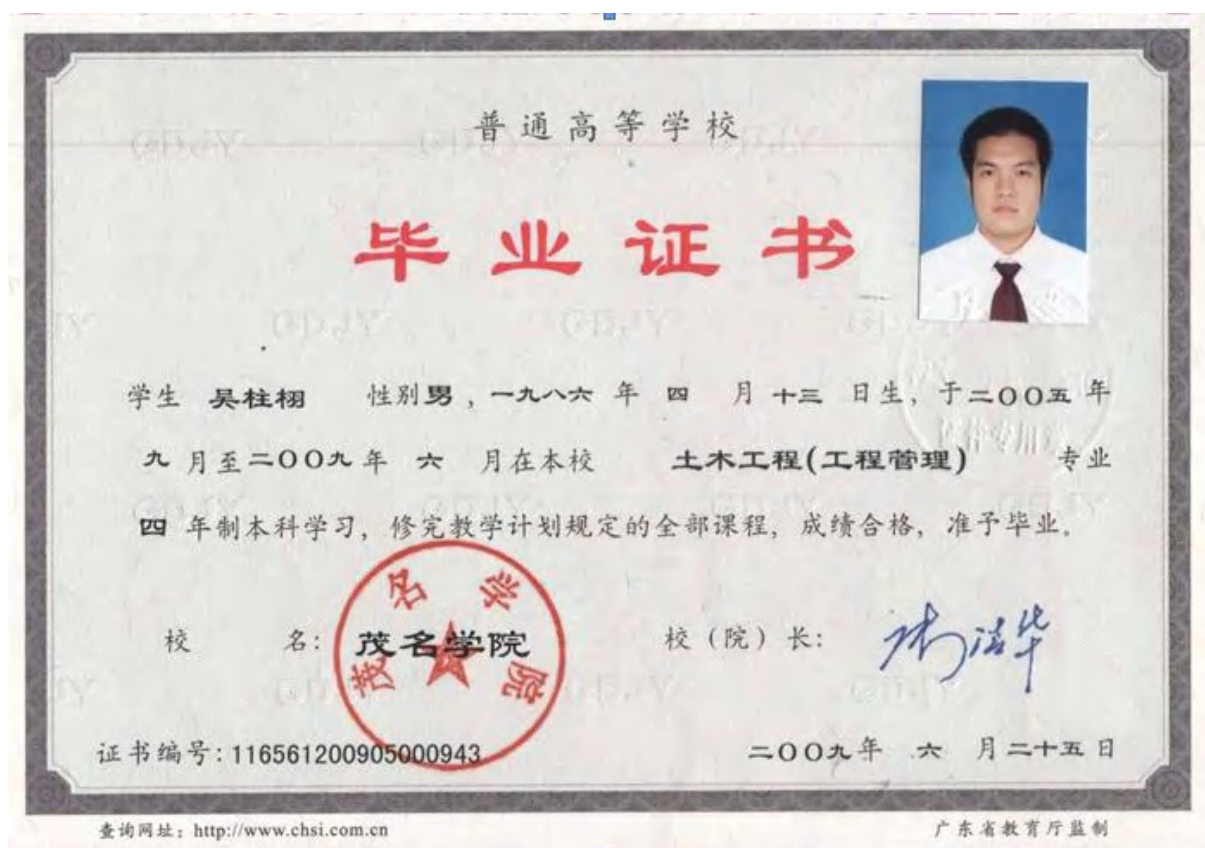 普通高等学校
毕业证书
学生 吴柱栩 性别男，一九八六年 四 月十三日生，于二〇〇五年
九月至二〇〇九年 六 月在本校 土木工程(工程管理) 专业
四年制本科学习，修完教学计划规定的全部课程，成绩合格，准予毕业。
茂名学院
校 名：茂名学院 校（院）长：
证书编号：116561200905000943 二〇〇九年 六 月二十五日
查询网址：http://www.chsi.com.cn 广东省教育厅监制